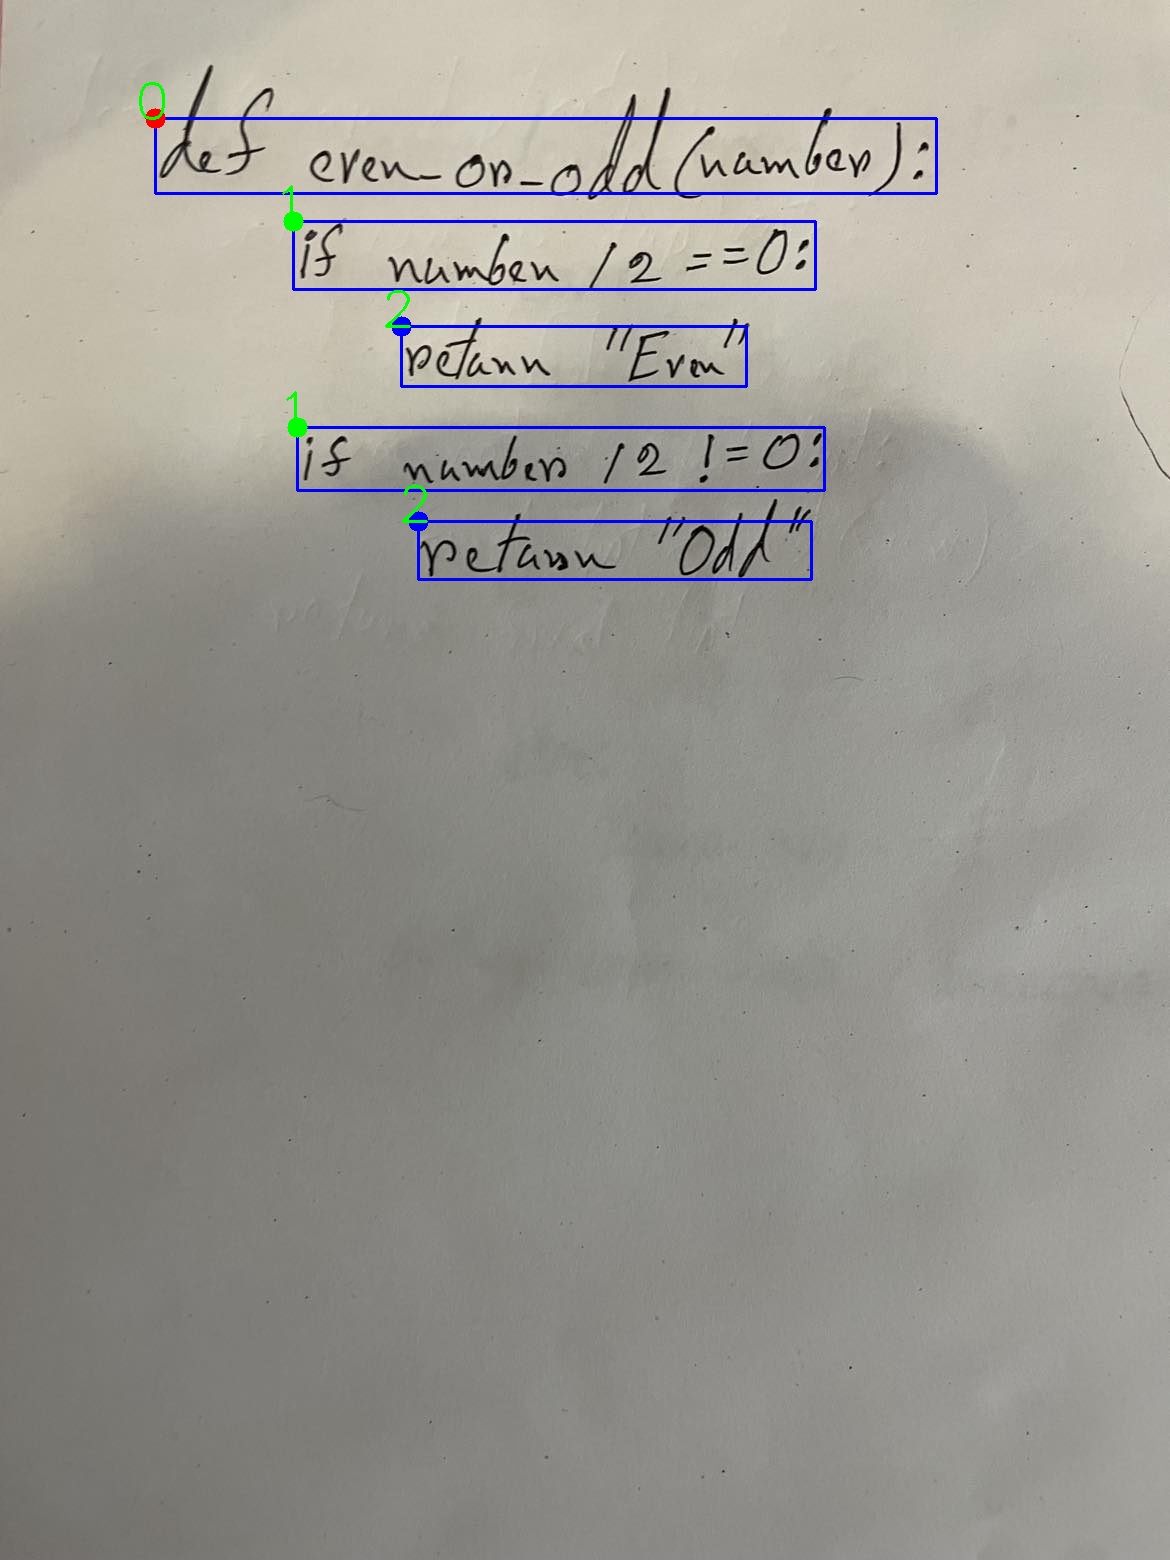 0
def even_or_odd(number):
1
if number / 2 == 0:
2
return "Even"
1
if number / 2 != 0:
2
return "Odd"